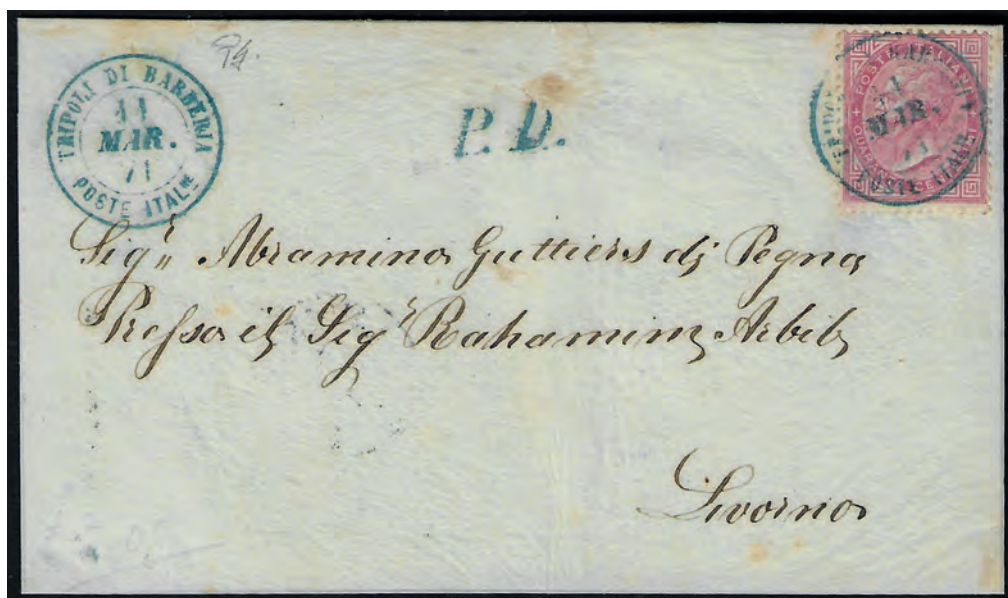 TRIPOLI DI BARBERIA
11
MAR.
71
POSTE ITALNE
P.D.
POSTE ITALIANE
QUARANTA CENTESIMI
MAR.
71
POSTE ITALNE
Sigr Abramino Guttieres di Pegna
Presso il Sigr Rahamim Arbib
Livorno